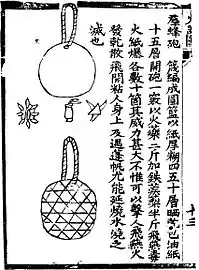 羣蜂砲 篾編成圓籃以紙厚糊四五十層晒乾包油紙
十五層開砲一竅以火藥二斤加鐵蒺藜半斤飛燕毒
火紙爆各數十箇其威力甚大不惟可以擊人飛燕火
發乾散飛開粘人身上及遇蓬帆尤能延燒水澆之
滅也
十三